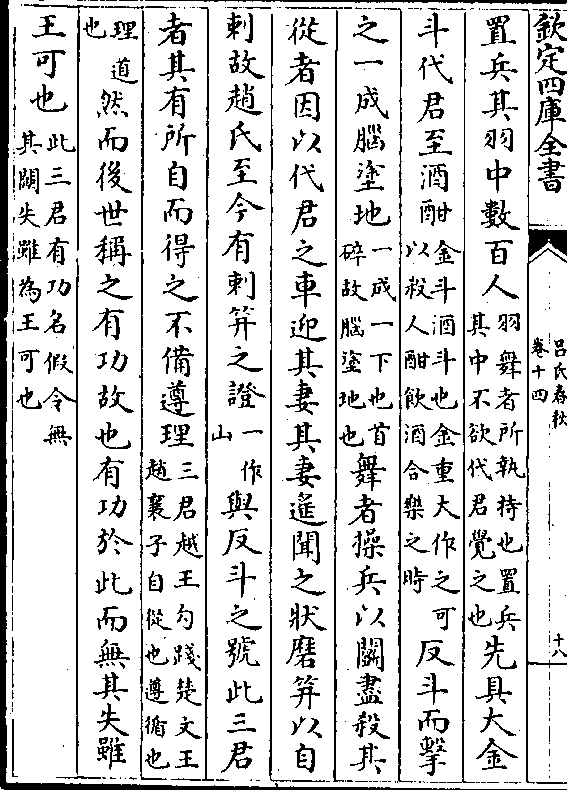 欽定四庫全書
呂氏春秋
卷十四
十八
置兵其羽中數百人羽舞者所執持也置兵其中不欲代君覺之也先具大金
斗代君至酒酣金斗酒斗也金重大作之可以殺人酣飲酒合樂之時反斗而擊
之一成腦塗地一成一下也首碎故腦塗地也舞者操兵以鬭盡殺其
從者因以代君之車迎其妻其妻遥聞之狀磨笄以自
刺故趙氏至今有刺笄之證一作山與反斗之號此三君
者其有所自而得之不備遵理三君越王勾踐楚文王趙襄子自從也遵循也
理道也然而後世稱之有功故也有功於此而無其失雖
王可也此三君有功名假令無其闕失雖為王可也